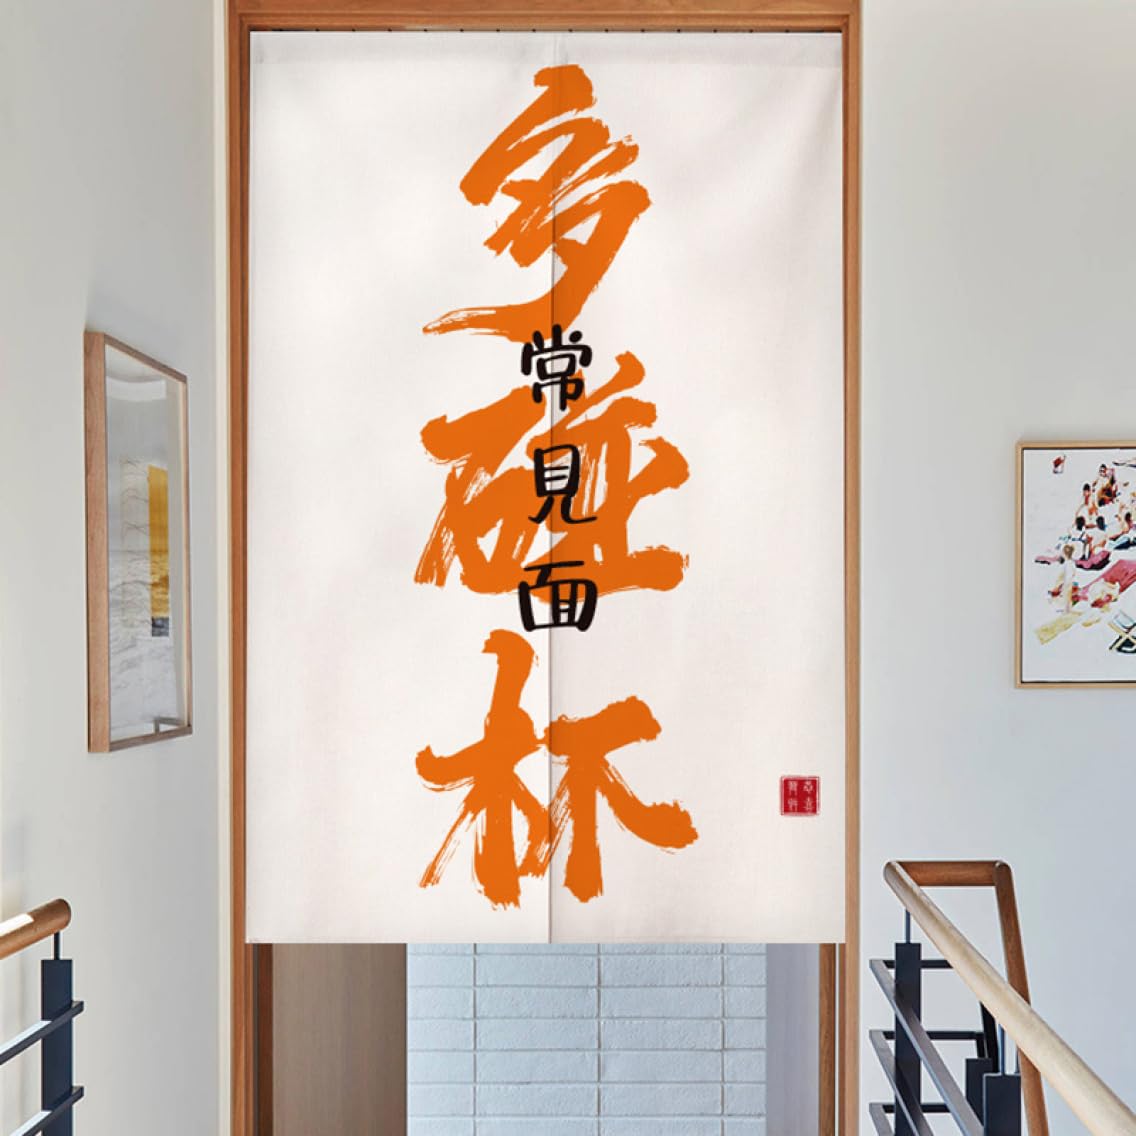 多碰杯
常見面